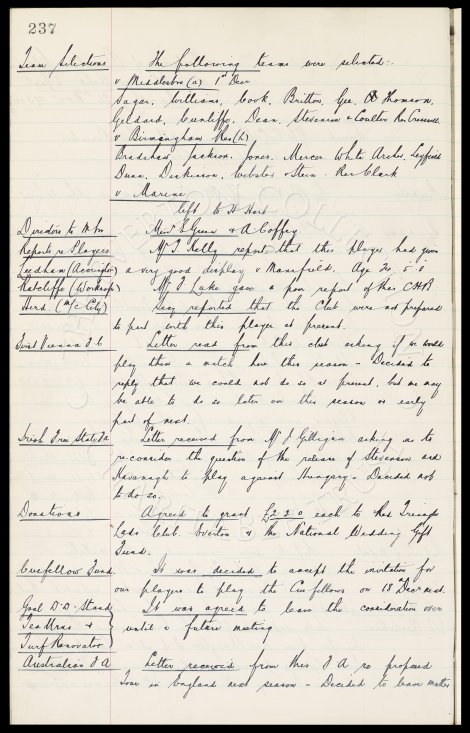 237
Team Selections The following teams were selected:-
v Middlesboro (a) 1st Decr
Sagar, Williams, Cook, Britton, Gee, Thomson,
Geldard, Cunliffe, Dean, Stevenson & Coulter Res Cresswell
v Birmingham Res (h)
Bradshaw Jackson, Jones, Mercer White Archer, Leyfield
Dunn, Dickinson, Webster & Stein - Res Clark
v Marine
left to H Hart
Directors to M'bro Messrs Green & A Coffey
Reports re Players Mr T Kelly reported that this player had given
Leedham (Accrington) a very good display v Mansfield. Age 20, 5' 8
Ratcliffe (Worksop) Mr T Lake gave a poor report of this CHB
Herd. (M/c City) Secy reported that the Club were not prepared
to part with this player at present.
First Vienna F C Letter read from this club asking if we would
play them a match here this season - Decided to
reply that we could not do so at present, but we may
be able to do so later on this season or early
part of next.
Irish Free State Fa Letter received from Mr J Gilligan asking us to
re-consider the question of the release of Stevenson and
Kavanagh to play against Hungary - Decided not
to do so.
Donations Agreed to grant £2 2. 0 each to the
Lads Club. Everton & the National Wedding Gift
Fund.
Cuefellow Fund. It was decided to accept the invitation for
our players to play the Cuefellows on 13th Decr next.
Goal D.D. Stand It was agreed to leave the consideration over
Tea Urns & until a future meeting
Turf Renovator
Australian F A Letter received from this F A re proposed
Tour in England next season - Decided to leave matter